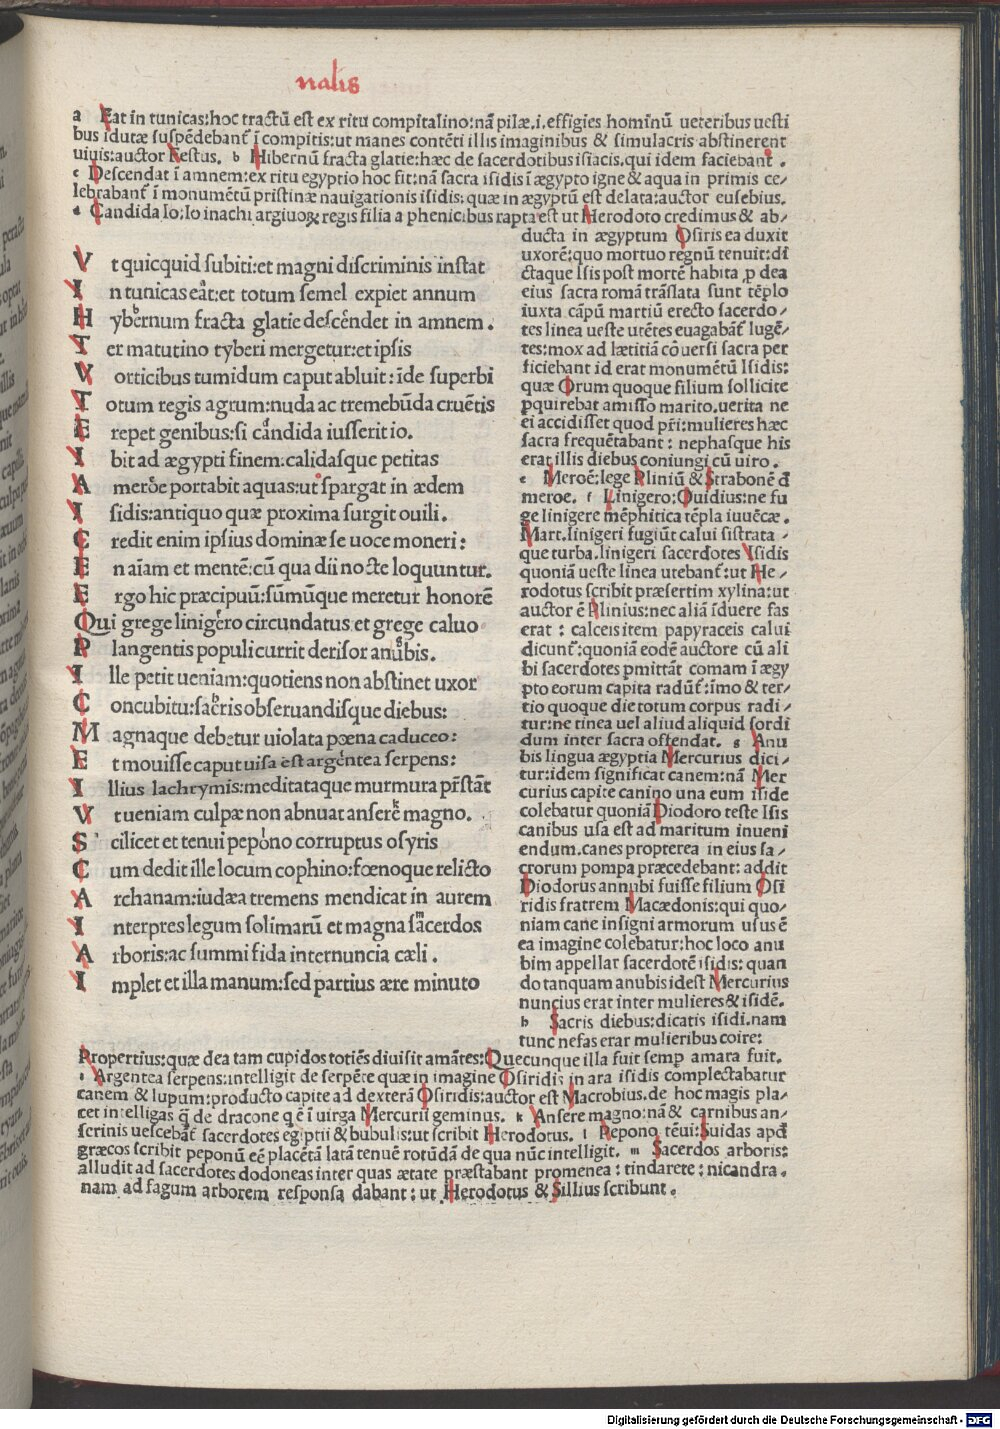 nalis
a Eat in tunicas:hoc tractū est ex ritu compitalino:nā pilæ.i.effigies hominū ueteribus uesti
bus idutæ suspēdebant̄ ī compitis:ut manes contēti illis imaginibus & simulacris abstinerent
uiuis:auctor Festus. b Hibernū fracta glatie:hæc de sacerdotibus isiacis.qui idem faciebant .
c Descendat ī amnem:ex ritu egyptio hoc fit:nā sacra isidis ī ægypto igne & aqua in primis ce/
lebrabant̄ ī monumētū pristinæ nauigationis isidis: quæ in ægyptū est delata:auctor eusebius.
d Candida Io:Io inachi argiuoꝝ regis filia a phenicibus rapta est ut Herodoto credimus & ab/
ducta in ægyptum Osiris ea duxit
uxorē:quo mortuo regnū tenuit:di
ctaque Isis post mortē habita ꝓ dea
eius sacra romā trāslata sunt tēplo
iuxta cāpū martiū erecto sacerdo/
tes linea ueste utētes euagabāt̄ lugē/
tes:mox ad lætitiā cōuersi sacra per
ficiebant id erat monumētū Isidis:
quæ Orum quoque filium sollicite
ꝑquirebat amisso marito.uerita ne
ei accidisset quod pr̄i:mulieres hæc
sacra frequētabant : nephasque his
erat illis diebus coniungi cū uiro .
e Meroē:lege Pliniū & Strabonē d̄
meroe. f Linigero:Ouidius:ne fu
ge linigere mēphitica tēpla iuuēcæ .
Mart.linigeri fugiūt calui sistrata /
que turba.linigeri sacerdotes Isidis
quoniā ueste linea utebant̄:ut He/
rodotus scribit præsertim xylina:ut
auctor ē Plinius:nec aliā īduere fas
erat : calceis item papyraceis calui
dicunt̄:quoniā eodē auctore cū ali
bi sacerdotes ꝓmittāt comam ī ægy
pto eorum capita radūt̄:imo & ter/
tio quoque die totum corpus radi /
tur:ne tinea uel aliud aliquid sordi
dum inter sacra ostendat. g Anu
bis lingua ægyptia Mercurius dici/
tur:idem significat canem:nā Mer
curius capite canino una eum iside
colebatur quoniā Diodoro teste Isis
canibus usa est ad maritum inueni
endum.canes propterea in eius sa/
crorum pompa præcedebant: addit
Diodorus annubi fuisse filium Osi
ridis fratrem Macædonis:qui quo/
niam cane insigni armorum usus ē
ea imagine colebatur:hoc loco anu
bim appellat sacerdotē isidis: quan
do tanquam anubis idest Mercurius
nuncius erat inter mulieres & isidē.
h Sacris diebus:dicatis isidi.nam
tunc nefas erat mulieribus coire:
V t quicquid subiti:et magni discriminis instat
I n tunicas eāt:et totum semel expiet annum
H ybernum fracta glatie descēndet in amnem .
T er matutino tyberi mergetur:et ipsis
V orticibus tumidum caput abluit : īde superbi
T otum regis agrum:nuda ac tremebūda cruētis
E repet genibus:si cādida iusserit io.
I bit ad ægypti finem.calidasque petitas
A meroe portabit aquas:ut spargat in ædem
I sidis:antiquo quæ proxima surgit ouili .
C redit enim ipsius dominæ se uoce moneri :
E n aīam et mentē:cū qua dii nocte loquuntur.
E rgo hic præcipuū:sūmūque meretur honorē
Qui grege linigero circundatus et grege caluo
P langentis populi currit derisor anubis.
I lle petit ueniam:quotiens non abstinet uxor
C oncubitu:sacris obseruandisque diebus:
M agnaque debetur uiolata pœna caduceo :
E t mouisse caput uisa est argentea serpens:
I llius lachrymis:meditataque murmura pr̄stāt
V t ueniam culpæ non abnuat ansere magno.
S cilicet et tenui pepono corruptus osyris
C um dedit ille locum cophino:fœnoque relicto
A rchanam:iudæa tremens mendicat in aurem
I nterpres legum solimarū et magna sacerdos
A rboris:ac summi fida internuncia cæli .
I mplet et illa manum:sed partius ære minuto
Propertius:quæ dea tam cupidos totiēs diuisit amātes:Quecunque illa fuit semp amara fuit.
i Argentea serpens:intelligit de serpēte quæ in imagine Osiridis in ara isidis complectabatur
canem & lupum:producto capite ad dexterā Osiridis:auctor est Macrobius.de hoc magis pla/
cet intelligas q̄ de dracone q ē ī uirga Mercurii geminus. k Ansere magno:nā & carnibus an/
serinis uescebāt̄ sacerdotes egiptii & bubulis:ut scribit Herodotus. l Pepono tēui:Suidas apd̄
græcos scribit peponū eē placētā latā tenuē rotūdā de qua nūc intelligit. m Sacerdos arboris:
alludit ad sacerdotes dodoneas inter quas ætate præstabant promenea : tindarete : nicandra .
nam ad fagum arborem responsa dabant : ut Herodotus & Sillius scribunt .
Digitalisierung gefördert durch die Deutsche Forschungsgemeinschaft - DFG